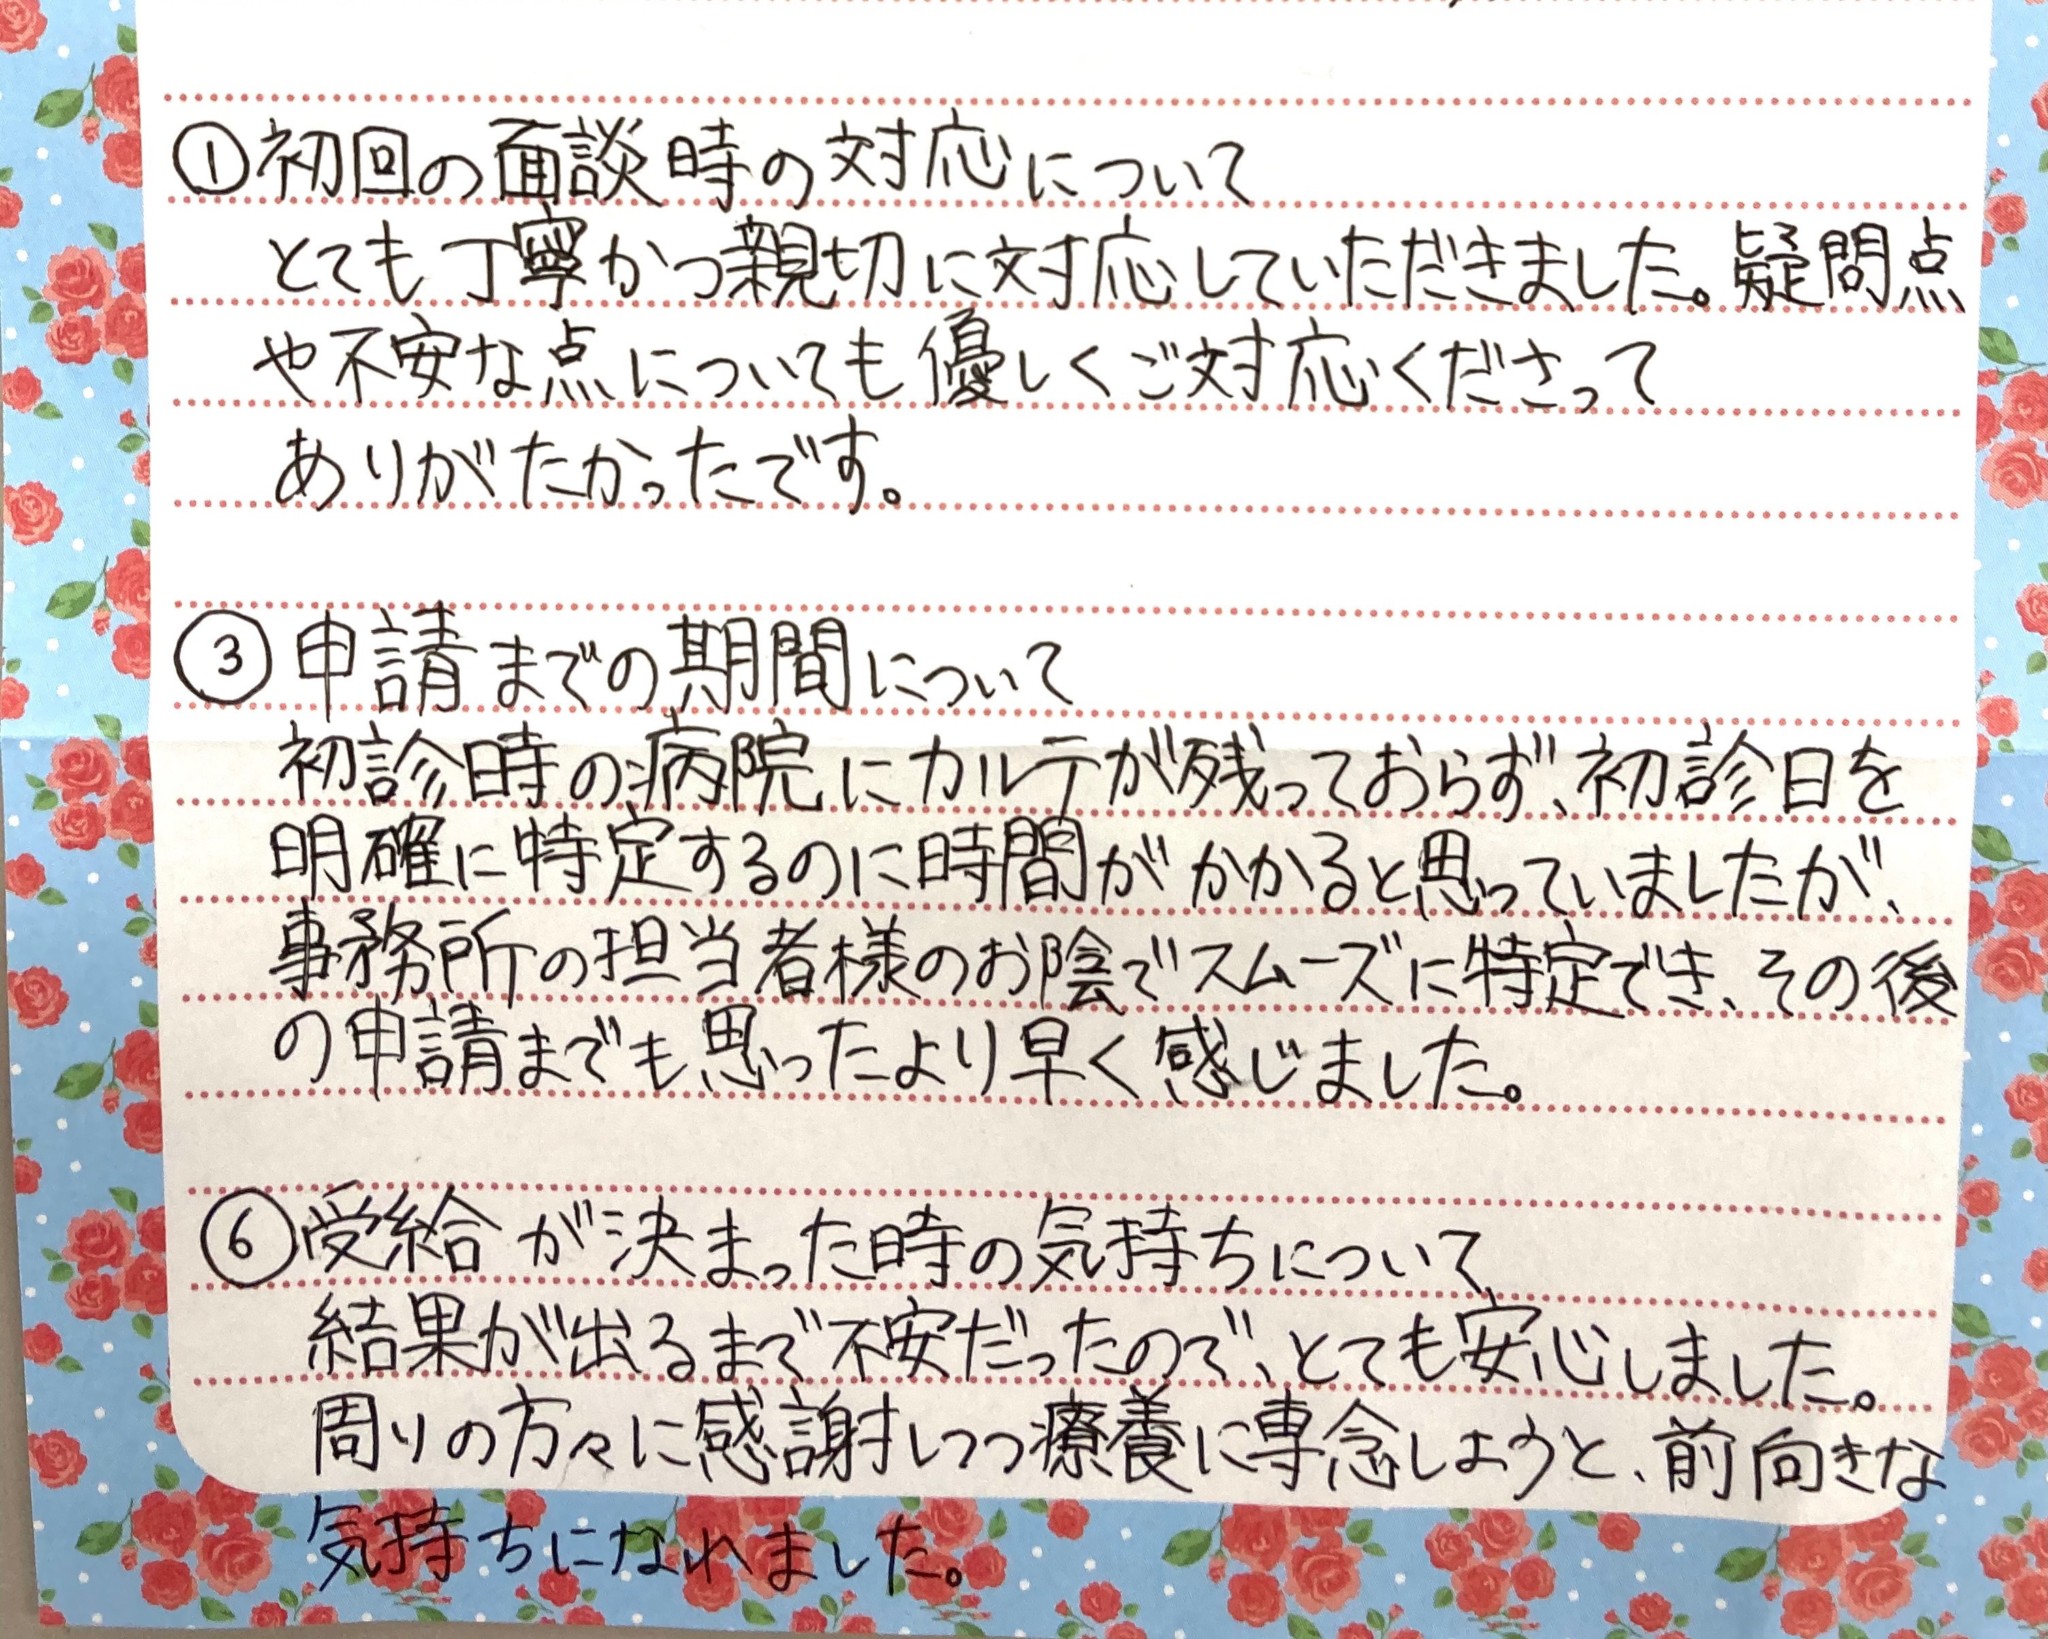 ①初回の面談時の対応について
とても丁寧かつ親切に対応していただきました。疑問点
や不安な点についても優しくご対応くださって
ありがたかったです。
③申請までの期間について
初診時の病院にカルテが残っておらず、初診日を
明確に特定するのに時間がかかると思っていましたが、
事務所の担当者様のお陰でスムーズに特定でき、その後
の申請までも思ったより早く感じました。
⑥受給が決まった時の気持ちについて
結果が出るまで不安だったので、とても安心しました。
周りの方々に感謝しつつ療養に専念しようと、前向きな
気持ちになれました。